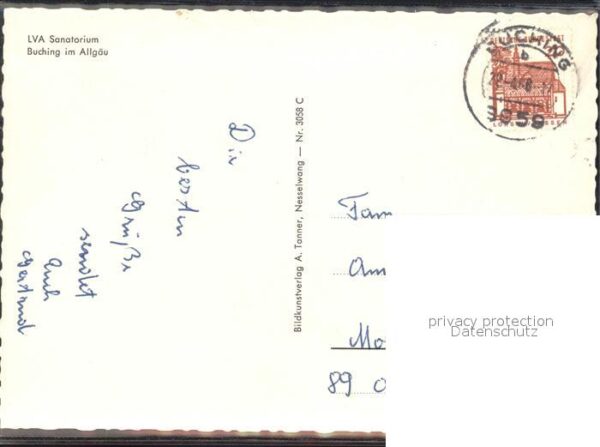 LVA Sanatorium
Buching im Allgäu
BUCHING
b
8959
DEUTSCHE BUNDESPOST
Bildkunstverlag A. Tanner, Nesselwang — Nr. 3058 C
Die
besten
Grüße
sendet
Euch
Gertrud
Fam
Am
Mo
89
privacy protection
Datenschutz